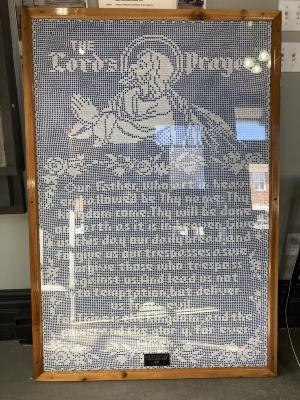 THE
Lord's Prayer
Our Father, who art in heav
en, hallowed be Thy name. Thy
kingdom come. Thy will be done
on earth as it is in
this day our daily bread, and
forgive us our trespasses as we
forgive those who trespass
against us. And lead us not
into temptation but deliver
us from evil
the
and the glory for ever